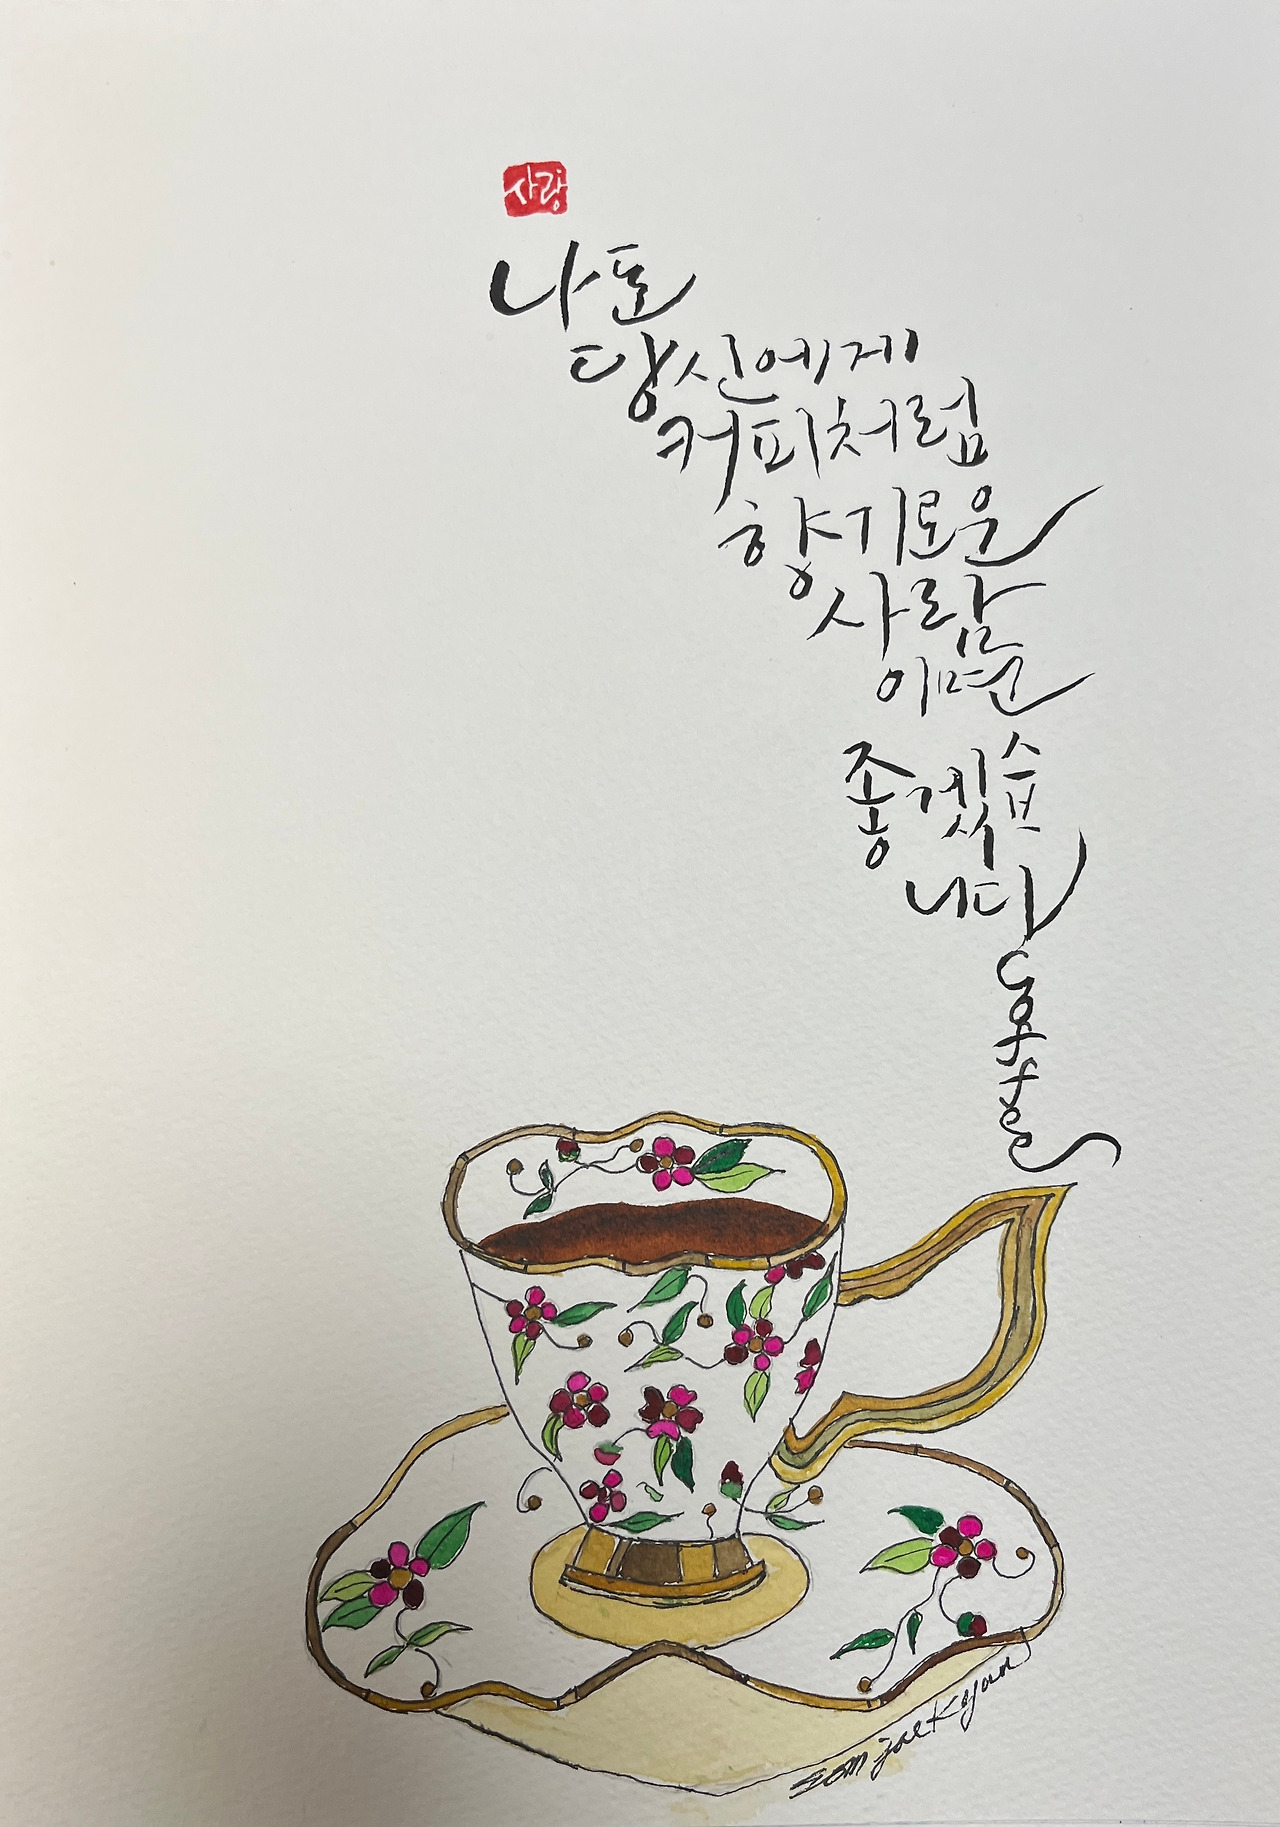 사랑
나도
당신에게
커피처럼
향기로운
사람
이면
좋겠습
니다
Coffee